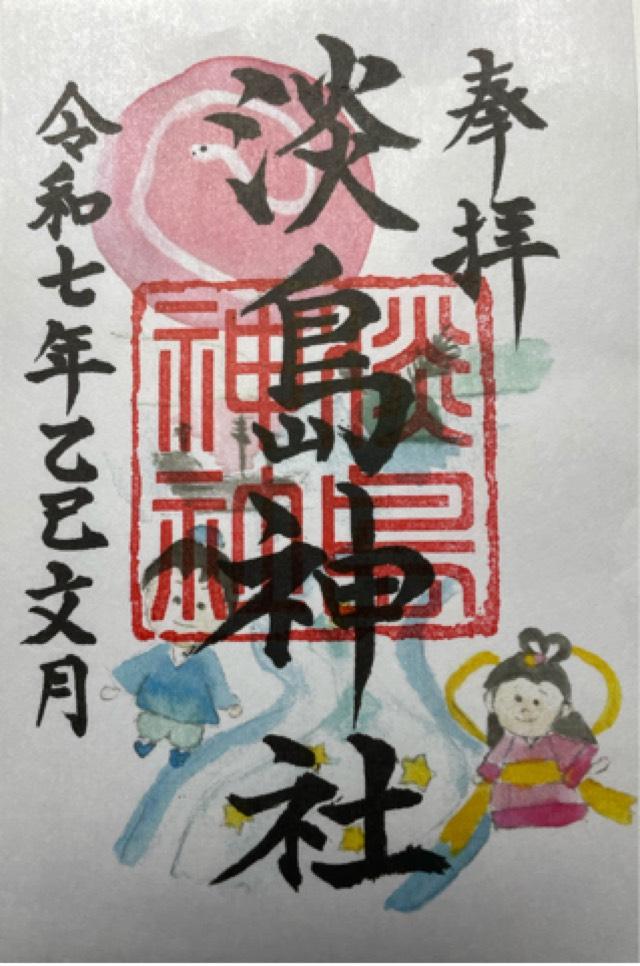 奉拝
淡島神社
淡島
神社
令和七年乙巳文月